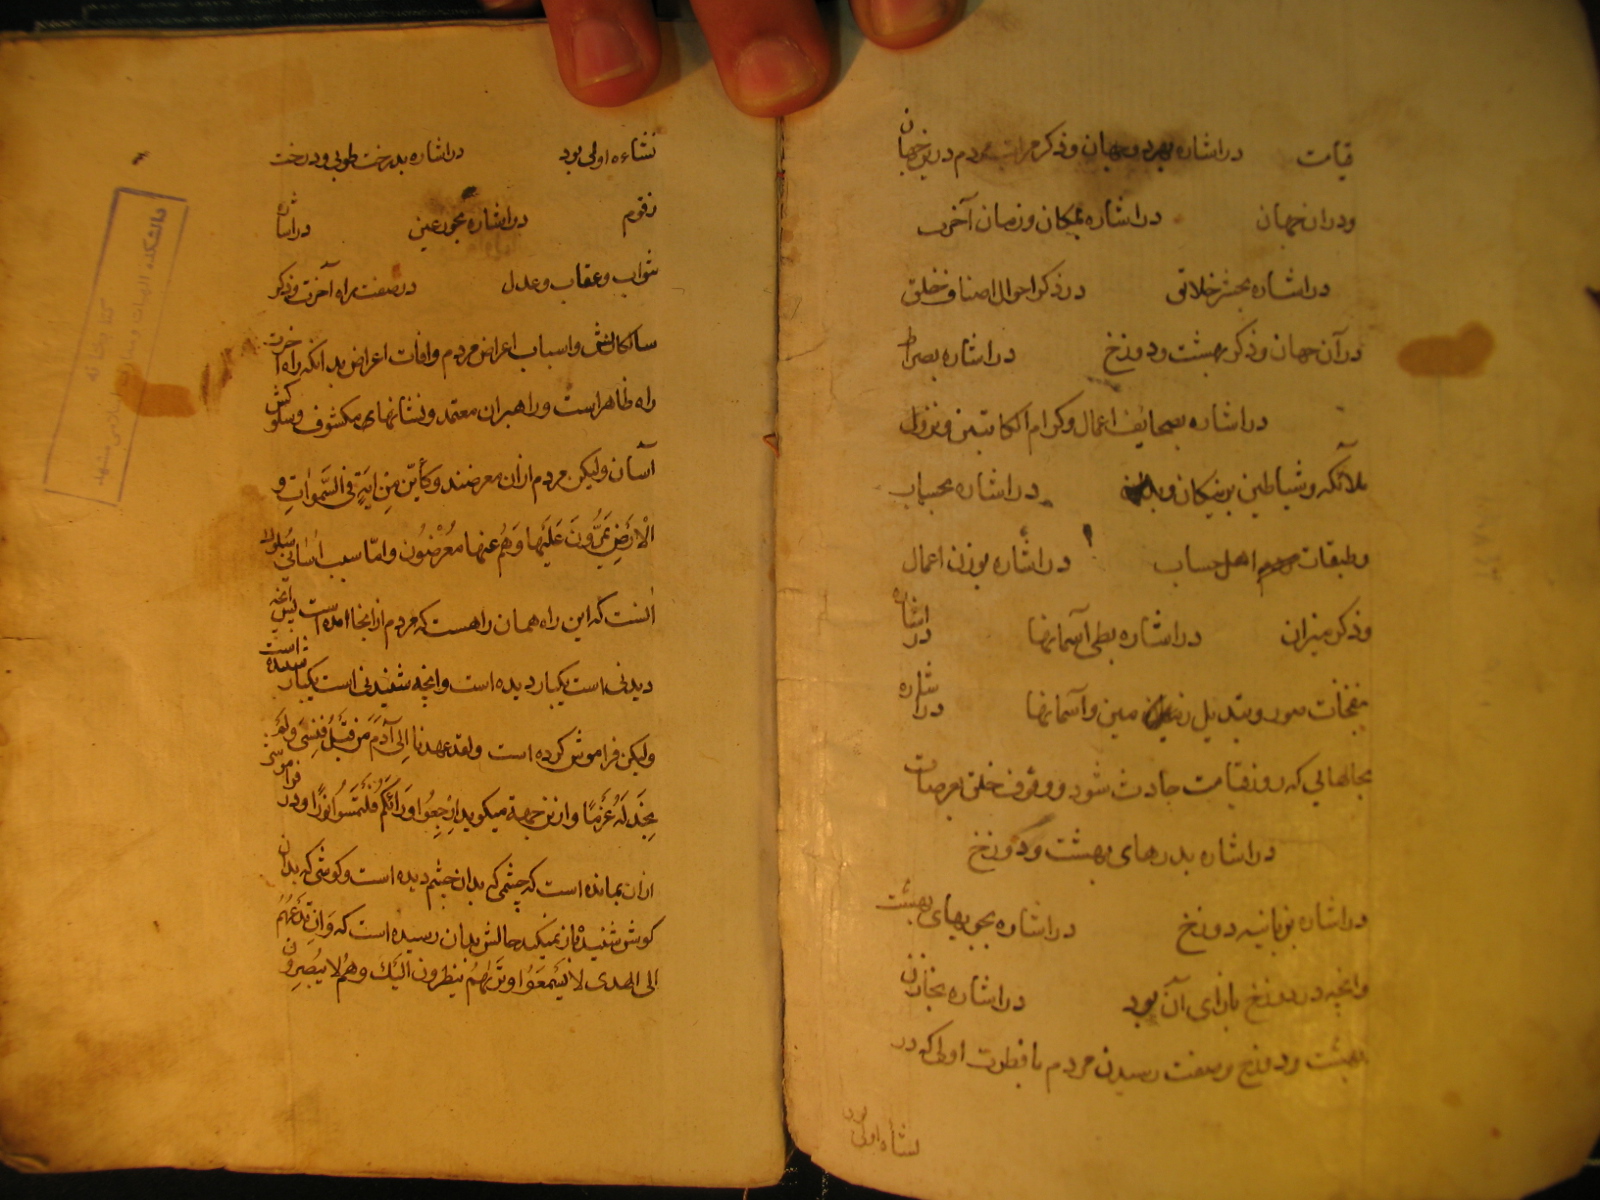 قیامت در اشاره بهر دو جهان و ذکر مراتب مردم درین جهان
و در ان جهان در اشاره بمکان و زمان آخرت
در اشاره بحشر خلائق در ذکر احوال اصناف خلق
در آن جهان و ذکر بهشت و دوزخ در اشاره بصراط
در اشاره بصحایف اعمال و کرام الکاتبین و نزول
ملائکه و شیاطین بر نیکان و بدان در اشاره بحساب
و طبقات اهل حساب در اشاره بوزن اعمال
و ذکر میزان در اشاره بطی آسمانها در اشاره
بنفخات صور و تبدیل زمین و آسمانها در اشاره
بحالهایی که روز قیامت حادث شود و وقوف خلق بعرصات
در اشاره بدرهای بهشت و دوزخ
در اشاره بزبانیه دوزخ در اشاره بجویهای بهشت
وانچه در دوزخ بازای آن بود در اشاره بخازن
بهشت و دوزخ و صفت رسیدن مردم با فطرت اولی که در
نشاه اولی بود
نشاءه اولی بود در اشاره بدرخت طوبی و درخت
زقوم در اشاره بحور عین در اشاره
ثواب و عقاب و عدل در صفت راه آخرت و ذکر
سالکانش و اسباب اعراض مردم و افات اعراض بدانکه راه اخرت
راه ظاهر است و راهبران معتمد و نشانهای مکشوف و سلوکش
آسان ولیکن مردم ازان معرضند وکأیّن مِن ایَةٍ فی السَّمواتِ و
الْارَضِ یَمُرُّونَ عَلَیها وَهُم عنها مُعْرضُون و امّا سبب اسانی سُلوک
انست که این راه همان راهست که مردم از انجا امده است پس انچه
دیدنی است یکبار دیده است و انچه شنیدنی است یکبار شنیده است
ولیکن فراموش کرده است ولقد عهدنا اِلی آدَمَ مَن قَبْلُ فَنَسِیَ وَلَمْ
نَجِدْ لَهُ عَزمًا و ازین جهة میکوید ارْجِعُوا وَرَائَکُم فَالتَمسُوا نُورًا و در فراموشی
ازان بمانده است که چشمی که بدان چشم دیده است و کوشی که بدان
کوش شنیده باز نمیکند حالش بدان رسیده است که وَان تَدْعُهُمْ
الی الهدی لا یَسْمَعُوا وَتَرٰیهُم ینظرون الَیْكَ وهُم لا یُبْصِرون
دانشکده الهیات و معارف اسلامی مشهد
کتابخانه